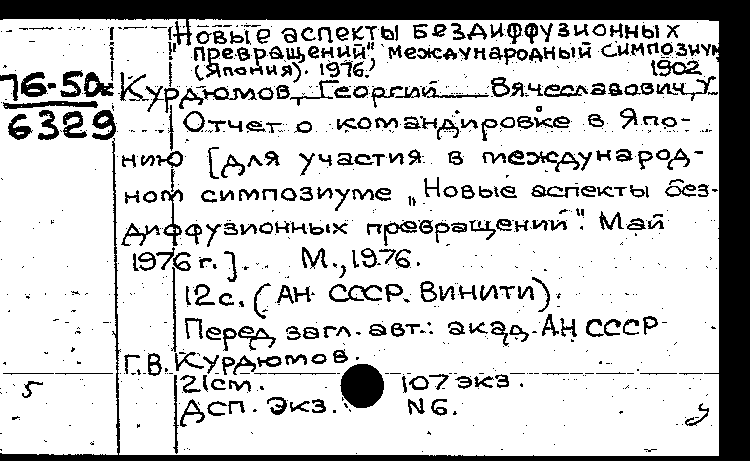 "Новые аспекты бездиффузионных
превращений", международный симпозиум
(Япония). 1976.
1902
76-50к
6329
Курдюмов, Георгий Вячеславович,
Отчет о командировке в Япо-
нию [для участия в международ-
ном симпозиуме „Новые аспекты без-
диффузионных превращений". Май
1976 г.]. М., 1976.
12 с. (АН СССР. ВИНИТИ).
Перед загл. авт.: акад. АН СССР
Г.В. Курдюмов.
5
21 см. 107 экз.
ДСП. Экз. N 6.
у